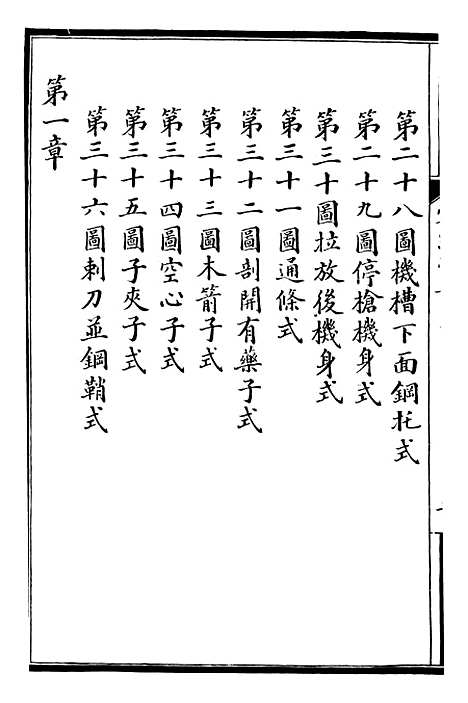 第二十八圖機槽下面鋼托式
第二十九圖停槍機身式
第三十圖拉放後機身式
第三十一圖通條式
第三十二圖剖開有藥子式
第三十三圖木箭子式
第三十四圖空心子式
第三十五圖子夾子式
第三十六圖刺刀並鋼鞘式
第一章